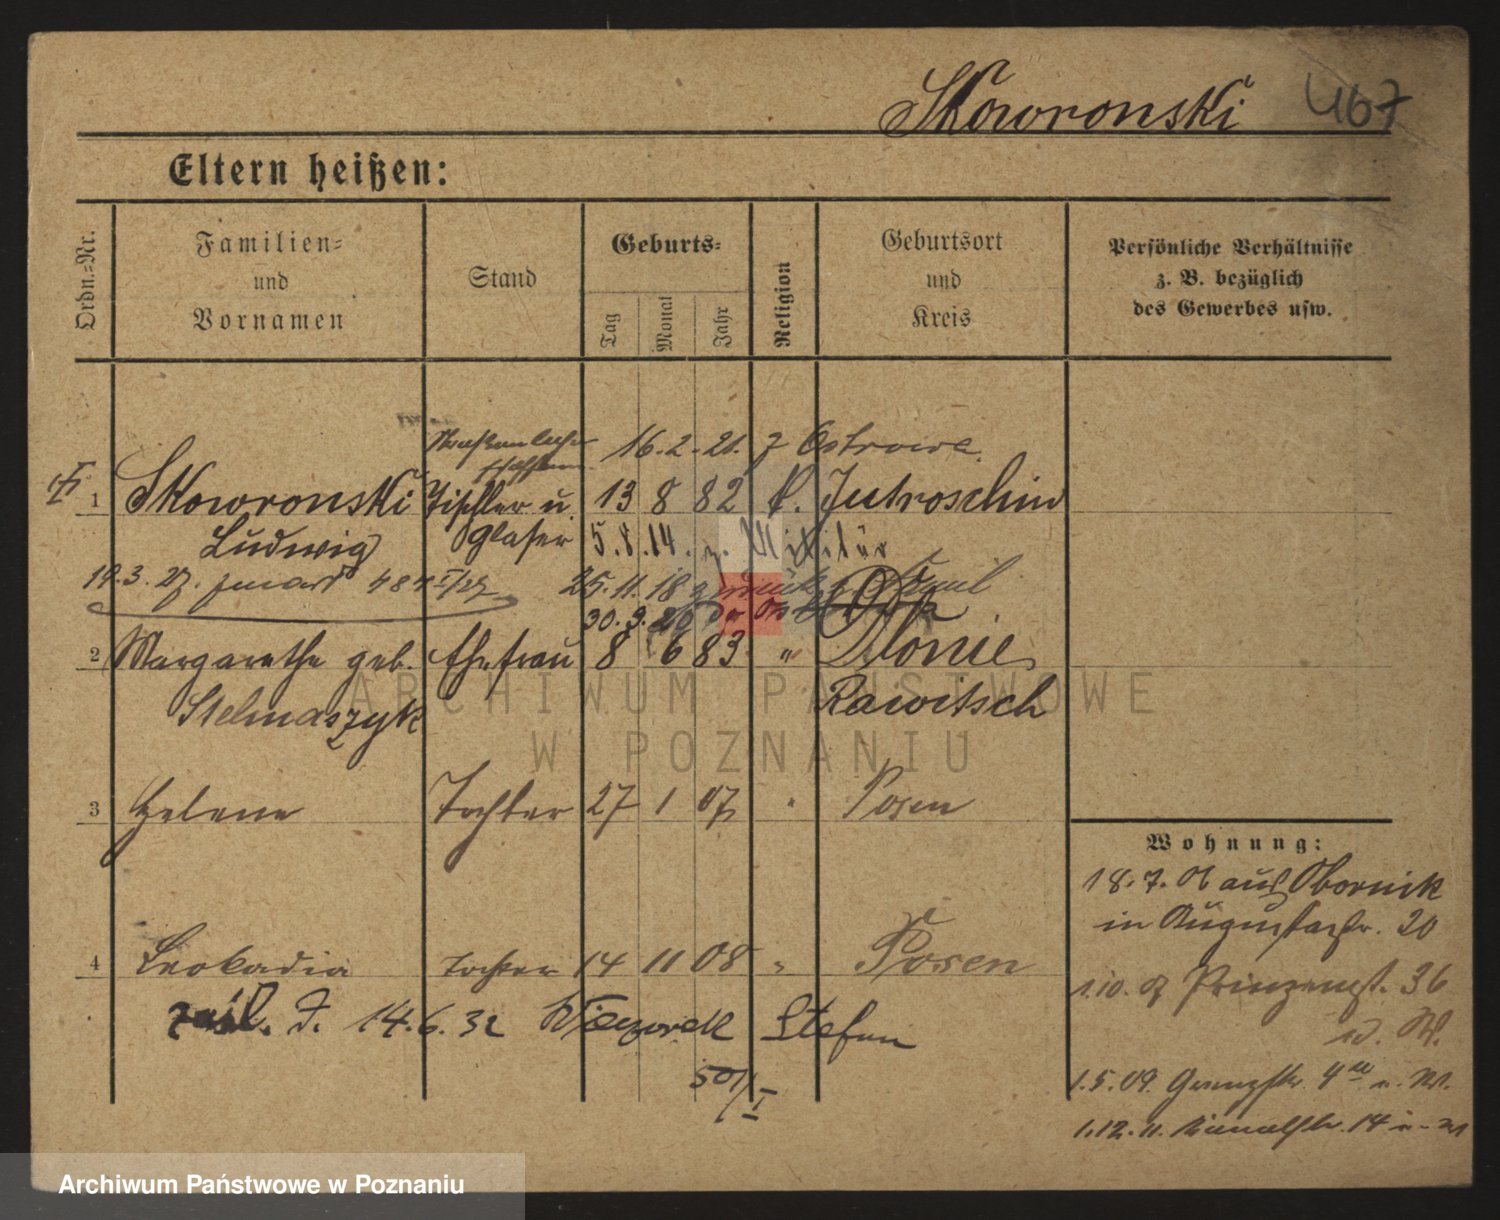 Skowronski 467
Eltern heißen:
Ordn.-Nr.
Familien-
und
Vornamen
Stand
Geburts-
Tag
Monat
Jahr
Religion
Geburtsort
und
Kreis
Persönliche Verhältnisse
z. B. bezüglich
des Gewerbes usw.
16.2.21. z Ostrowe.
1 Skowronski Tischler u. 13 8 82 k. Jutroschin
Ludwig Glaser 5.8.14. z. Militär
19.3.27. 25.11.18 zurück
30.9.20
2 Margarethe geb. Ehefrau 8 6 83 "
Stelmaszyk Rawitsch
3 Helene Tochter 27 1 07 " Posen
4 Leokadia Tochter 14 11 08 " Posen
14.6.32 Stefan
Wohnung:
18.7.06 aus Obornik
in Augustastr. 20
1.10. 36
1.5.09.
1.12.11. 14
ARCHIWUM PAŃSTWOWE
W POZNANIU
Archiwum Państwowe w Poznaniu